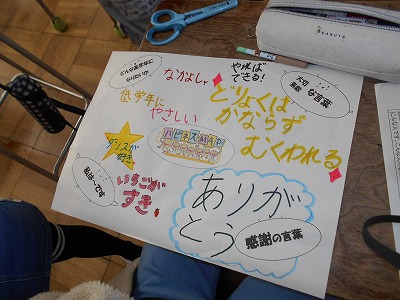 どんな高学年に
なりたいか
なかよし
やれば
できる!
大切
な言葉
低学年に
やさしい
どりょくは
かならず
むくわれる
ハピネスMAP
ダンスが
好き
私は~です
いちごが
すき
ありが
とう
感謝の言葉
PEANUTS